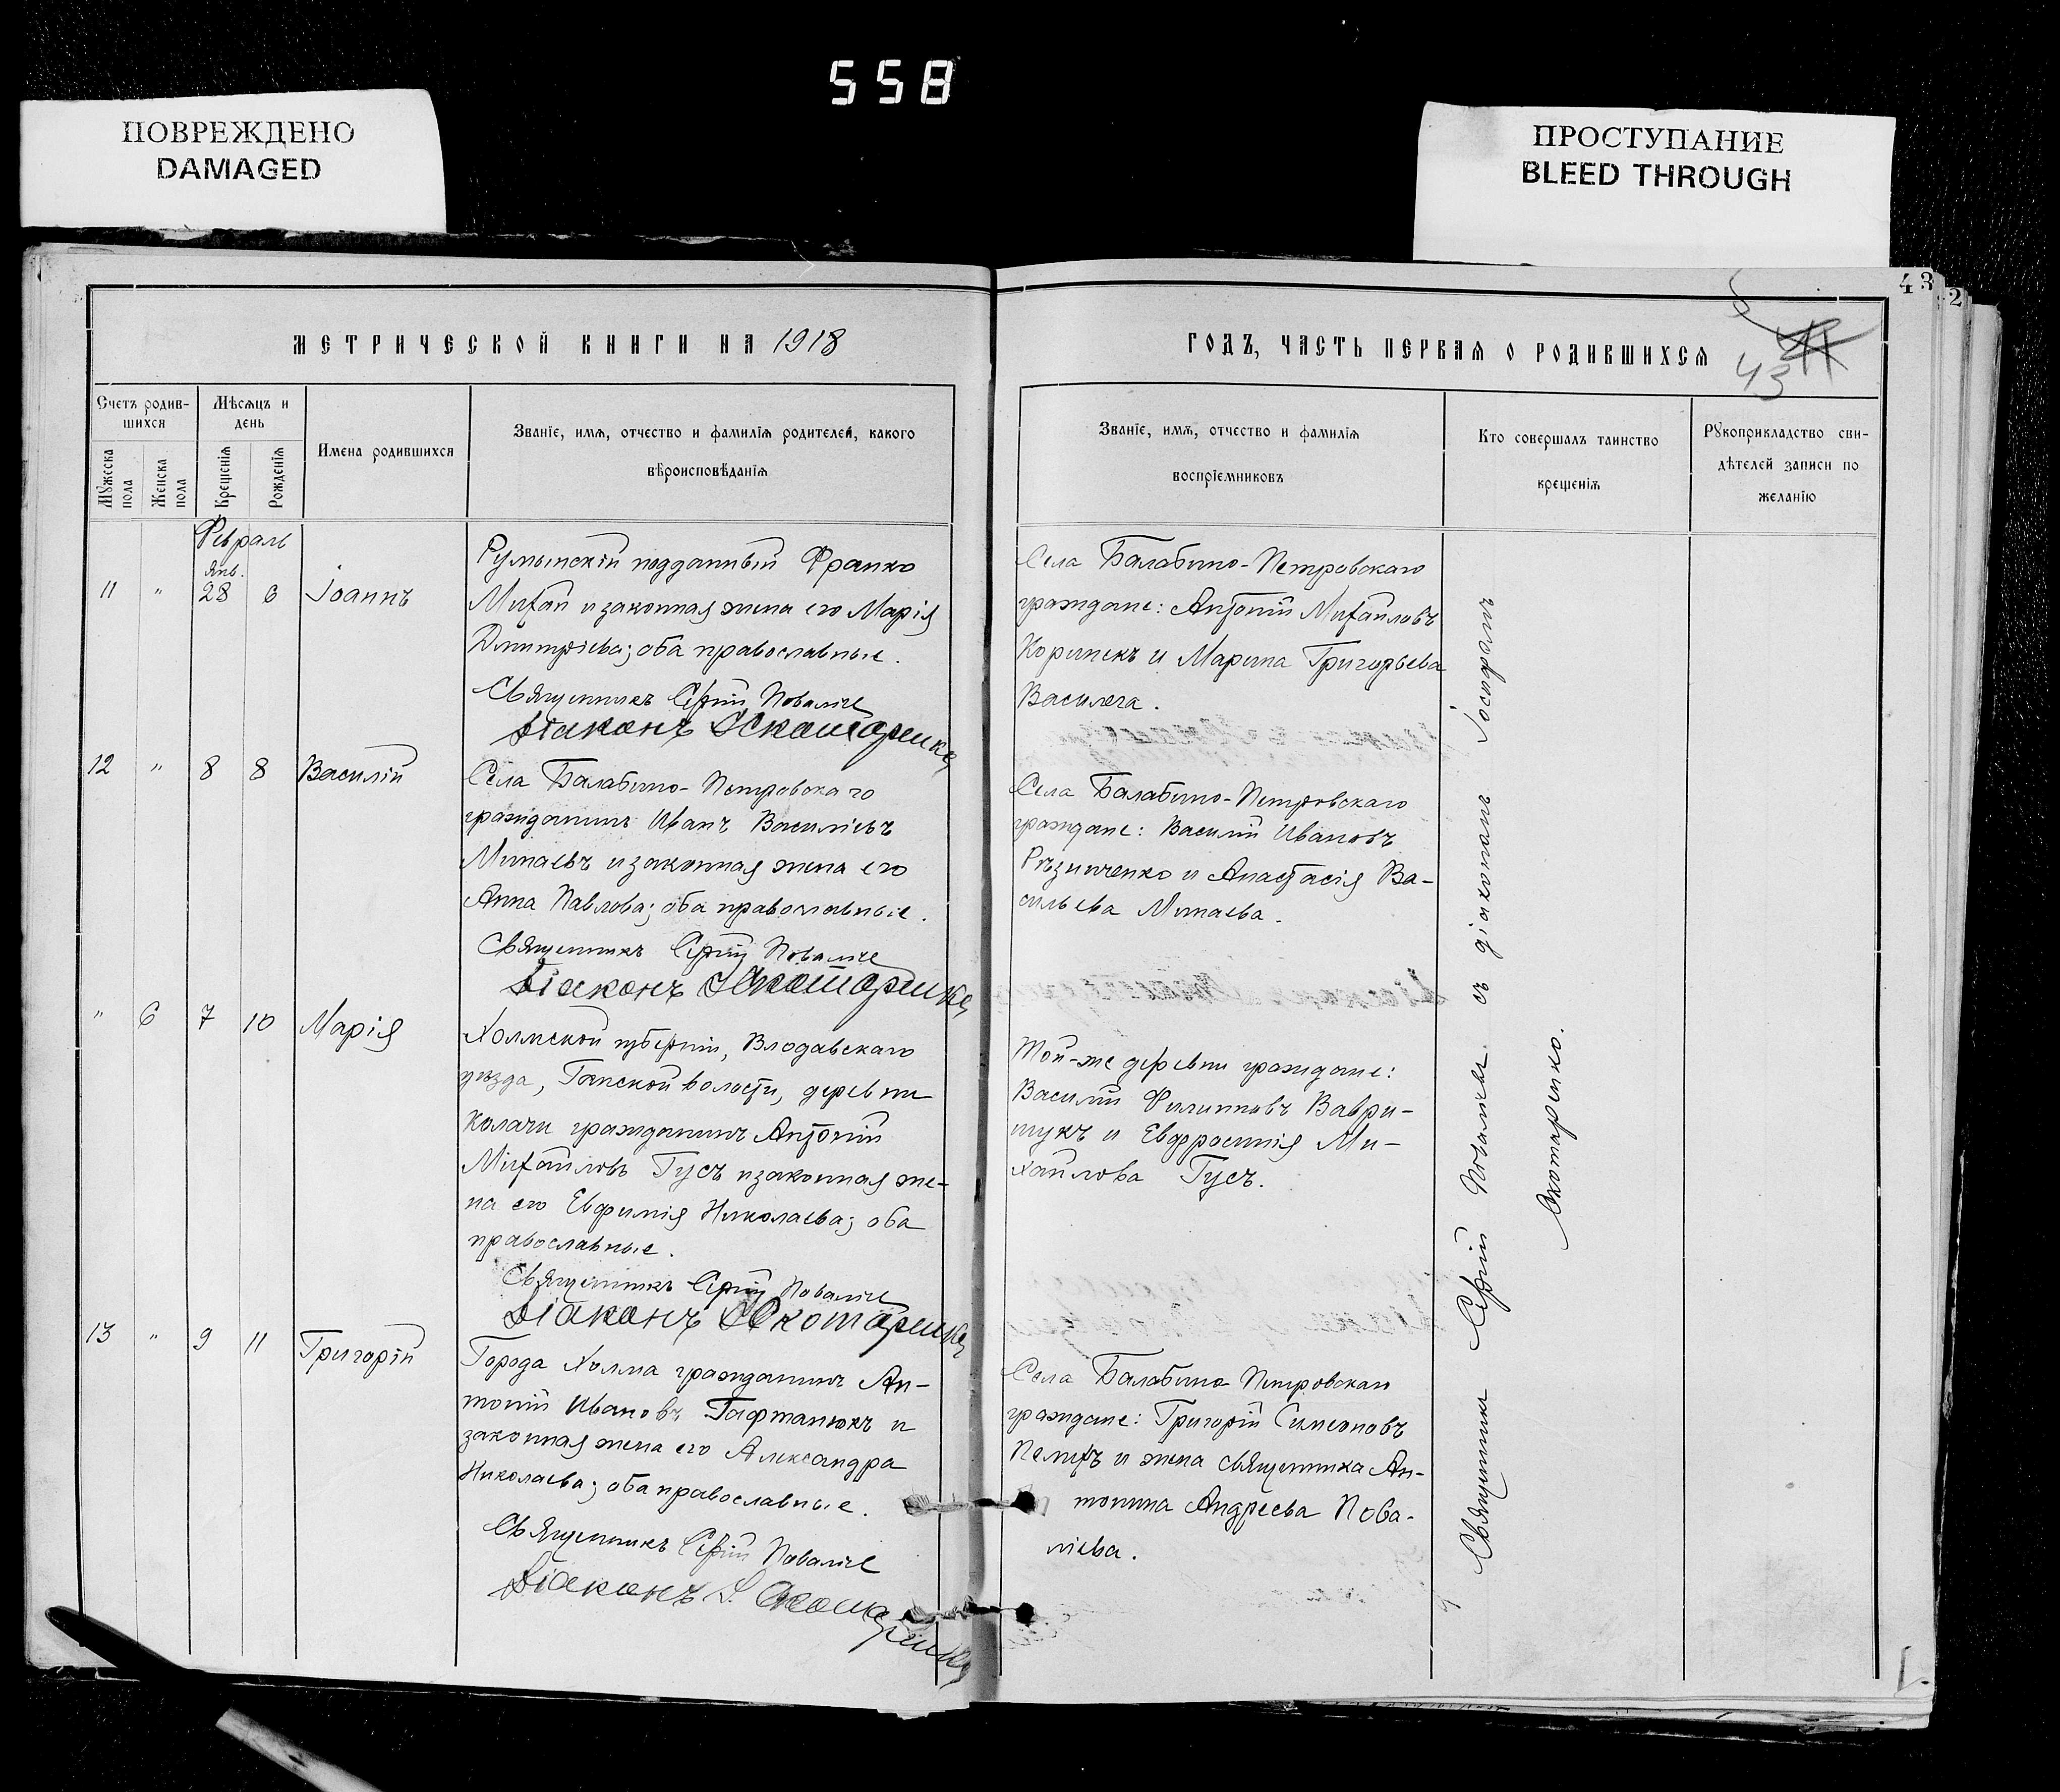 558
ПОВРЕЖДЕНО
DAMAGED
ПРОСТУПАНИЕ
BLEED THROUGH
43
2
МЕТРИЧЕСКОЙ КНИГИ НА 1918
Счетъ родив-
шихся
Мѣсяцъ и
день
Мужеска пола
Женска пола
Крещенія
Рожденія
Имена родившихся
Званіе, имя, отчество и фамилія родителей, какого
вѣроисповѣданія
Февраль
Янв.
11 " 28 6 Іоаннъ
Румынскій подданный Франко
Михай и законная жена его Марія
Дмитріева; оба православные.
Священникъ Сергій
Діаконъ
12 " 8 8 Василій
Села Балабино-Петровскаго
гражданинъ Иванъ Василіевъ
Минаевъ и законная жена его
Анна Павлова; оба православные.
Священникъ Сергій
Діаконъ
" 6 7 10 Марія
Холмской губерніи, Влодавскаго
уѣзда, Ганской волости, деревни
Колачи гражданинъ Антоній
Михайловъ Гусъ и законная же-
на его Евфимія Николаева; оба
православные.
Священникъ Сергій
Діаконъ
13 " 9 11 Григорій
Города Холма гражданинъ Ан-
тоній Ивановъ Гафтанюкъ и
законная жена его Александра
Николаева; оба православные.
Священникъ Сергій
Діаконъ
ГОДЪ, ЧАСТЬ ПЕРВАЯ О РОДИВШИХСЯ
43
Званіе, имя, отчество и фамилія
воспріемниковъ
Кто совершалъ таинство
крещенія
Рукоприкладство сви-
дѣтелей записи по
желанію
Села Балабино-Петровскаго
граждане: Антоній Михайловъ
Коринекъ и Марина Григорьева
Василега.
Села Балабино-Петровскаго
граждане: Василій Ивановъ
Рѣзниченко и Анастасія Ва-
сильева Минаева.
Той-же деревни граждане:
Василій Филипповъ Ваври-
щукъ и Евфросинія Ми-
хайлова Гусъ.
Села Балабино Петровскаго
граждане: Григорій Симеоновъ
и жена священника Ан-
тонина Андреева Пова-
ліева.
Священникъ Сергій съ діакономъ Іосифомъ
Скотаренко.